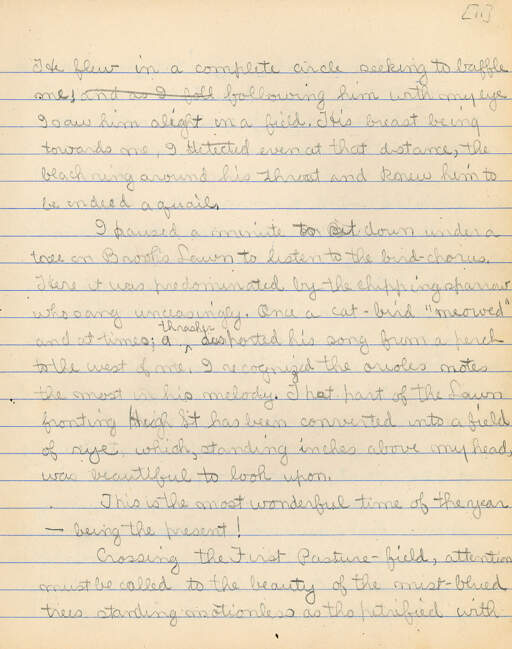 [11]
He flew in a complete circle seeking to baffle
me, and as I foll following him with my eye
I saw him alight in a field. His breast being
towards me, I detected even at that distance, the
black ring around his throat and knew him to
be indeed a quail.
I paused a minute to sit down under a
tree on Brook's Lawn to listen to the bird-chorus.
Here it was predominated by the chipping sparrow
who sang unceasingly. Once a cat-bird "meowed"
thrasher
and at times; a disported his song from a perch
to the west of me. I recognized the orioles notes
the most in his melody. That part of the Lawn
fronting High St has been converted into a field
of rye which, standing inches above my head,
was beautiful to look upon.
This is the most wonderful time of the year
— being the present!
Crossing the First Pasture-field, attention
must be called to the beauty of the mist-blued
trees standing motionless as tho petrified with